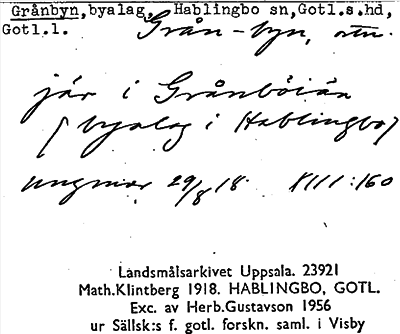 Grånbyn,byalag, Hablingbo sn,Gotl.s.hd,
Gotl.l.
Grån-byn, stn.
jär i Grånböiän
(byalag i Hablingbo)
ungmor 29/8 18. XIII:160
Landsmålsarkivet Uppsala. 23921
Math.Klintberg 1918. HABLINGBO, GOTL.
Exc. av Herb.Gustavson 1956
ur Sällsk:s f. gotl. forskn. saml. i Visby